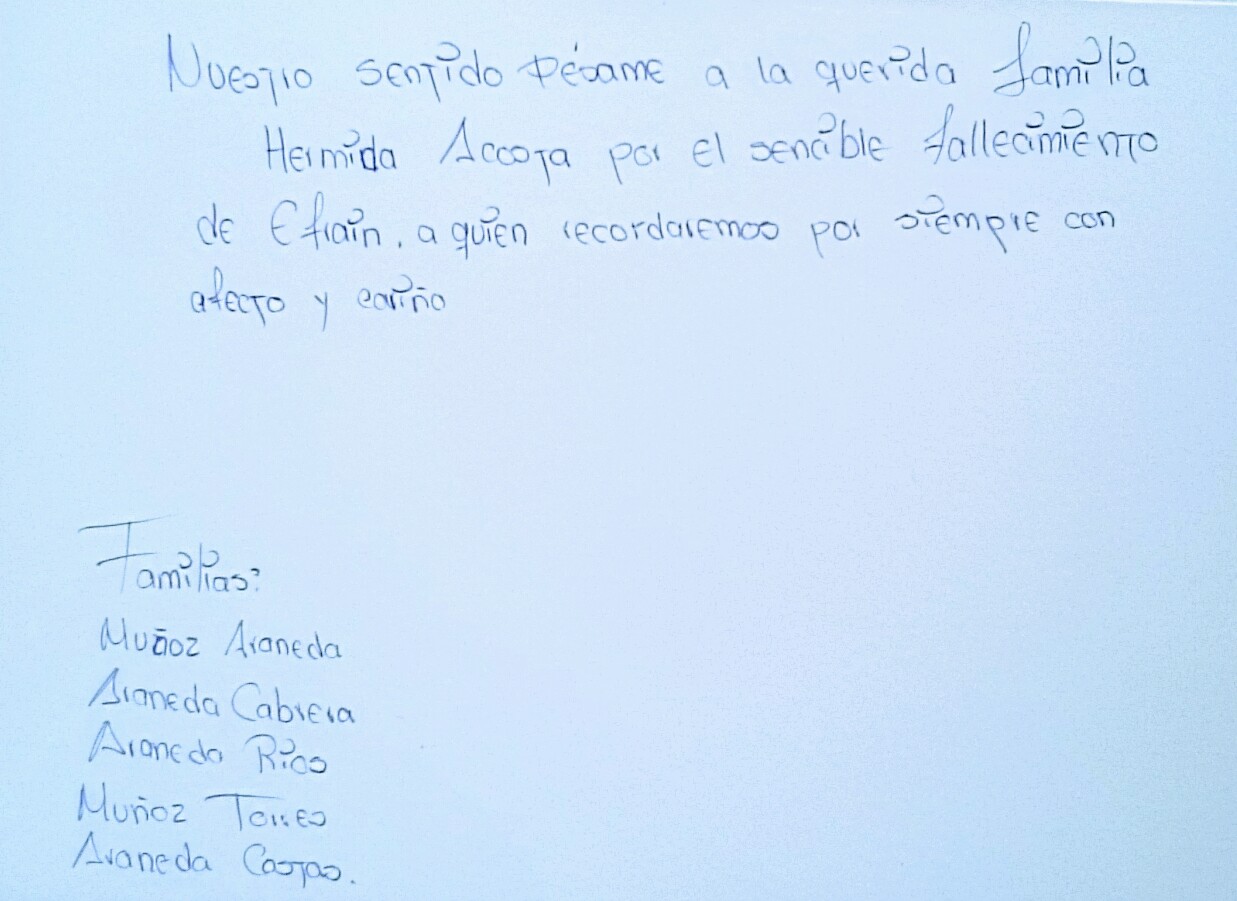 Nuestro sentido Pésame a la querida familia
Hermida Accota por el sencible fallecimiento
de Efraín, a quien recordaremos por siempre con
afecto y cariño
Familias:
Muñoz Araneda
Araneda Cabrera
Araneda Rios
Muñoz Torres
Araneda Castas.